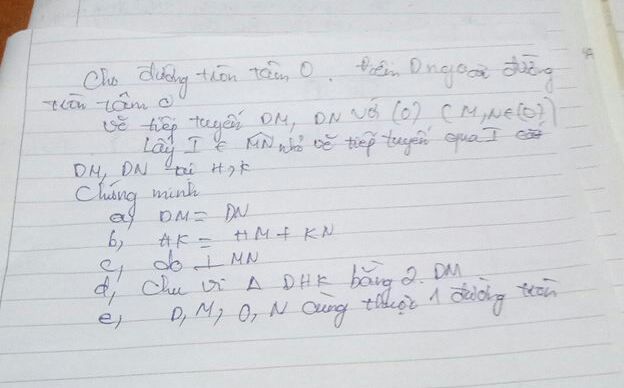 Cho đường tròn tâm O. điểm D ngoài đường
tròn tâm O
vẽ tiếp tuyến DM, DN với (O) (M,N∈(O))
Lấy I ∈ MN nhỏ vẽ tiếp tuyến qua I cắt
DM, DN tại H,K
Chứng minh
a, DM = DN
b, HK = HM + KN
c, do ⊥ MN
d, Chu vi Δ DHK bằng 2. DM
e, D, M, O, N cùng thuộc 1 đường tròn